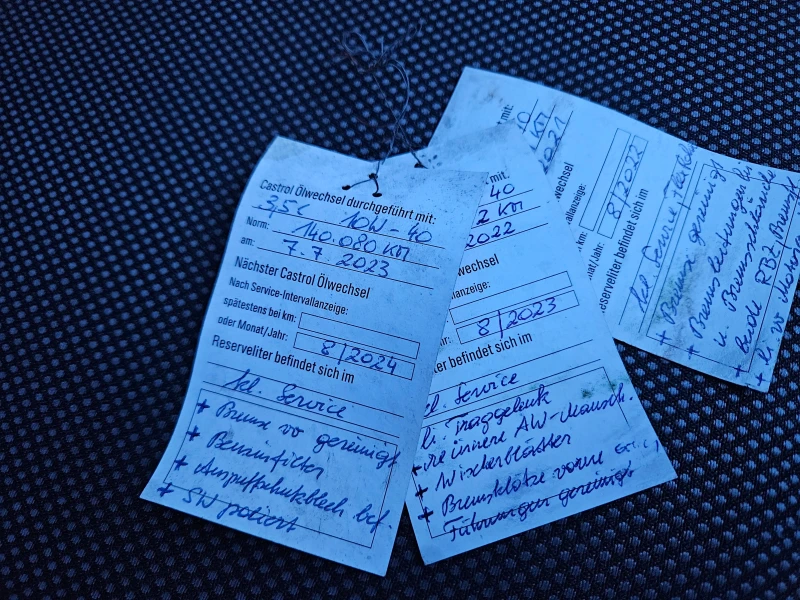 Castrol Ölwechsel durchgeführt mit:
3,5l 10W-40
Norm: 140.080 KM
am: 7.7.2023
Nächster Castrol Ölwechsel
Nach Service-Intervallanzeige:
spätestens bei km:
oder Monat/Jahr: 8/2024
Reserveliter befindet sich im
kl. Service
+ Bremse vo gereinigt
+ Benzinfilter
+ Auspuffschutzblech bef.
+ SW poliert
mit:
40
2 KM
2022
wechsel
anzeige:
hr: 8/2023
ter befindet sich im
kl. Service
li. Traggelenk
+ re innere AW-Mansch.
+ Wischerblätter
+ Bremsklötze vorne
Führungen gereinigt
mit:
KM
2021
wechsel
vallanzeige:
km:
nat/Jahr: 8/2022
Reserveliter befindet sich im
kl. Service,
+ Bremse gereinigt
+ Bremsleitungen
u. Bremsschläuche
+ beide RBZ,
+ li. vo